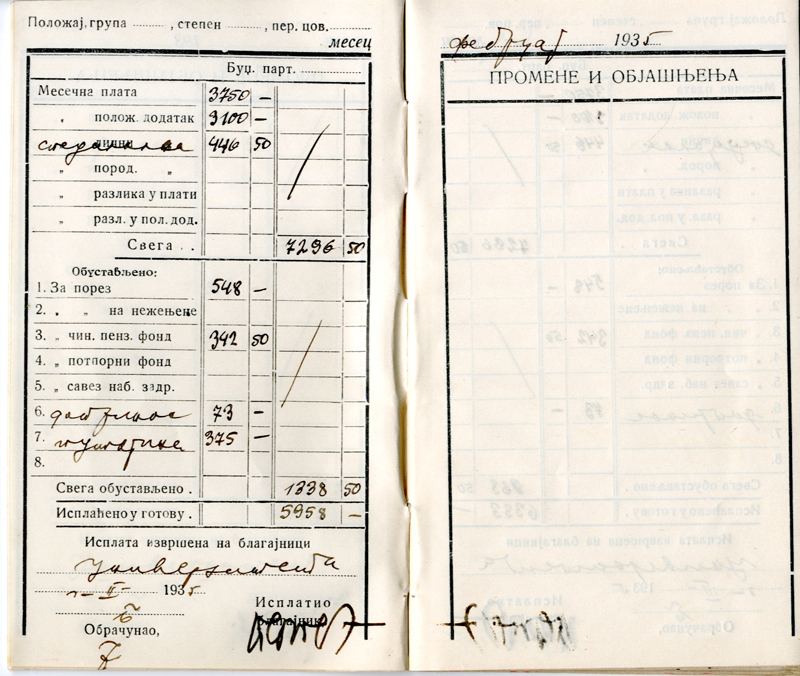 Положај, група ........, степен ........, пер. цов. ........
месец
Буџ. парт. ........
Месечна плата 3750 —
„ полож. додатак 3100 —
446 50
„ пород. „
„ разлика у плати
„ разл. у пол. дод.
Свега . . 7296 50
Обустављено:
1. За порез 548 —
2. „ „ на нежењене
3. „ чин. пенз. фонд 342 50
4. „ потпорни фонд
5. „ савез наб. задр.
6. 73 —
7. 375 —
8.
Свега обустављено . 1338 50
Исплаћено у готову . 5958 —
Исплата извршена на благајници
Универзитета
II 1935
Исплатио
благајник
Обрачунао,
фебруар 1935
ПРОМЕНЕ И ОБЈАШЊЕЊА